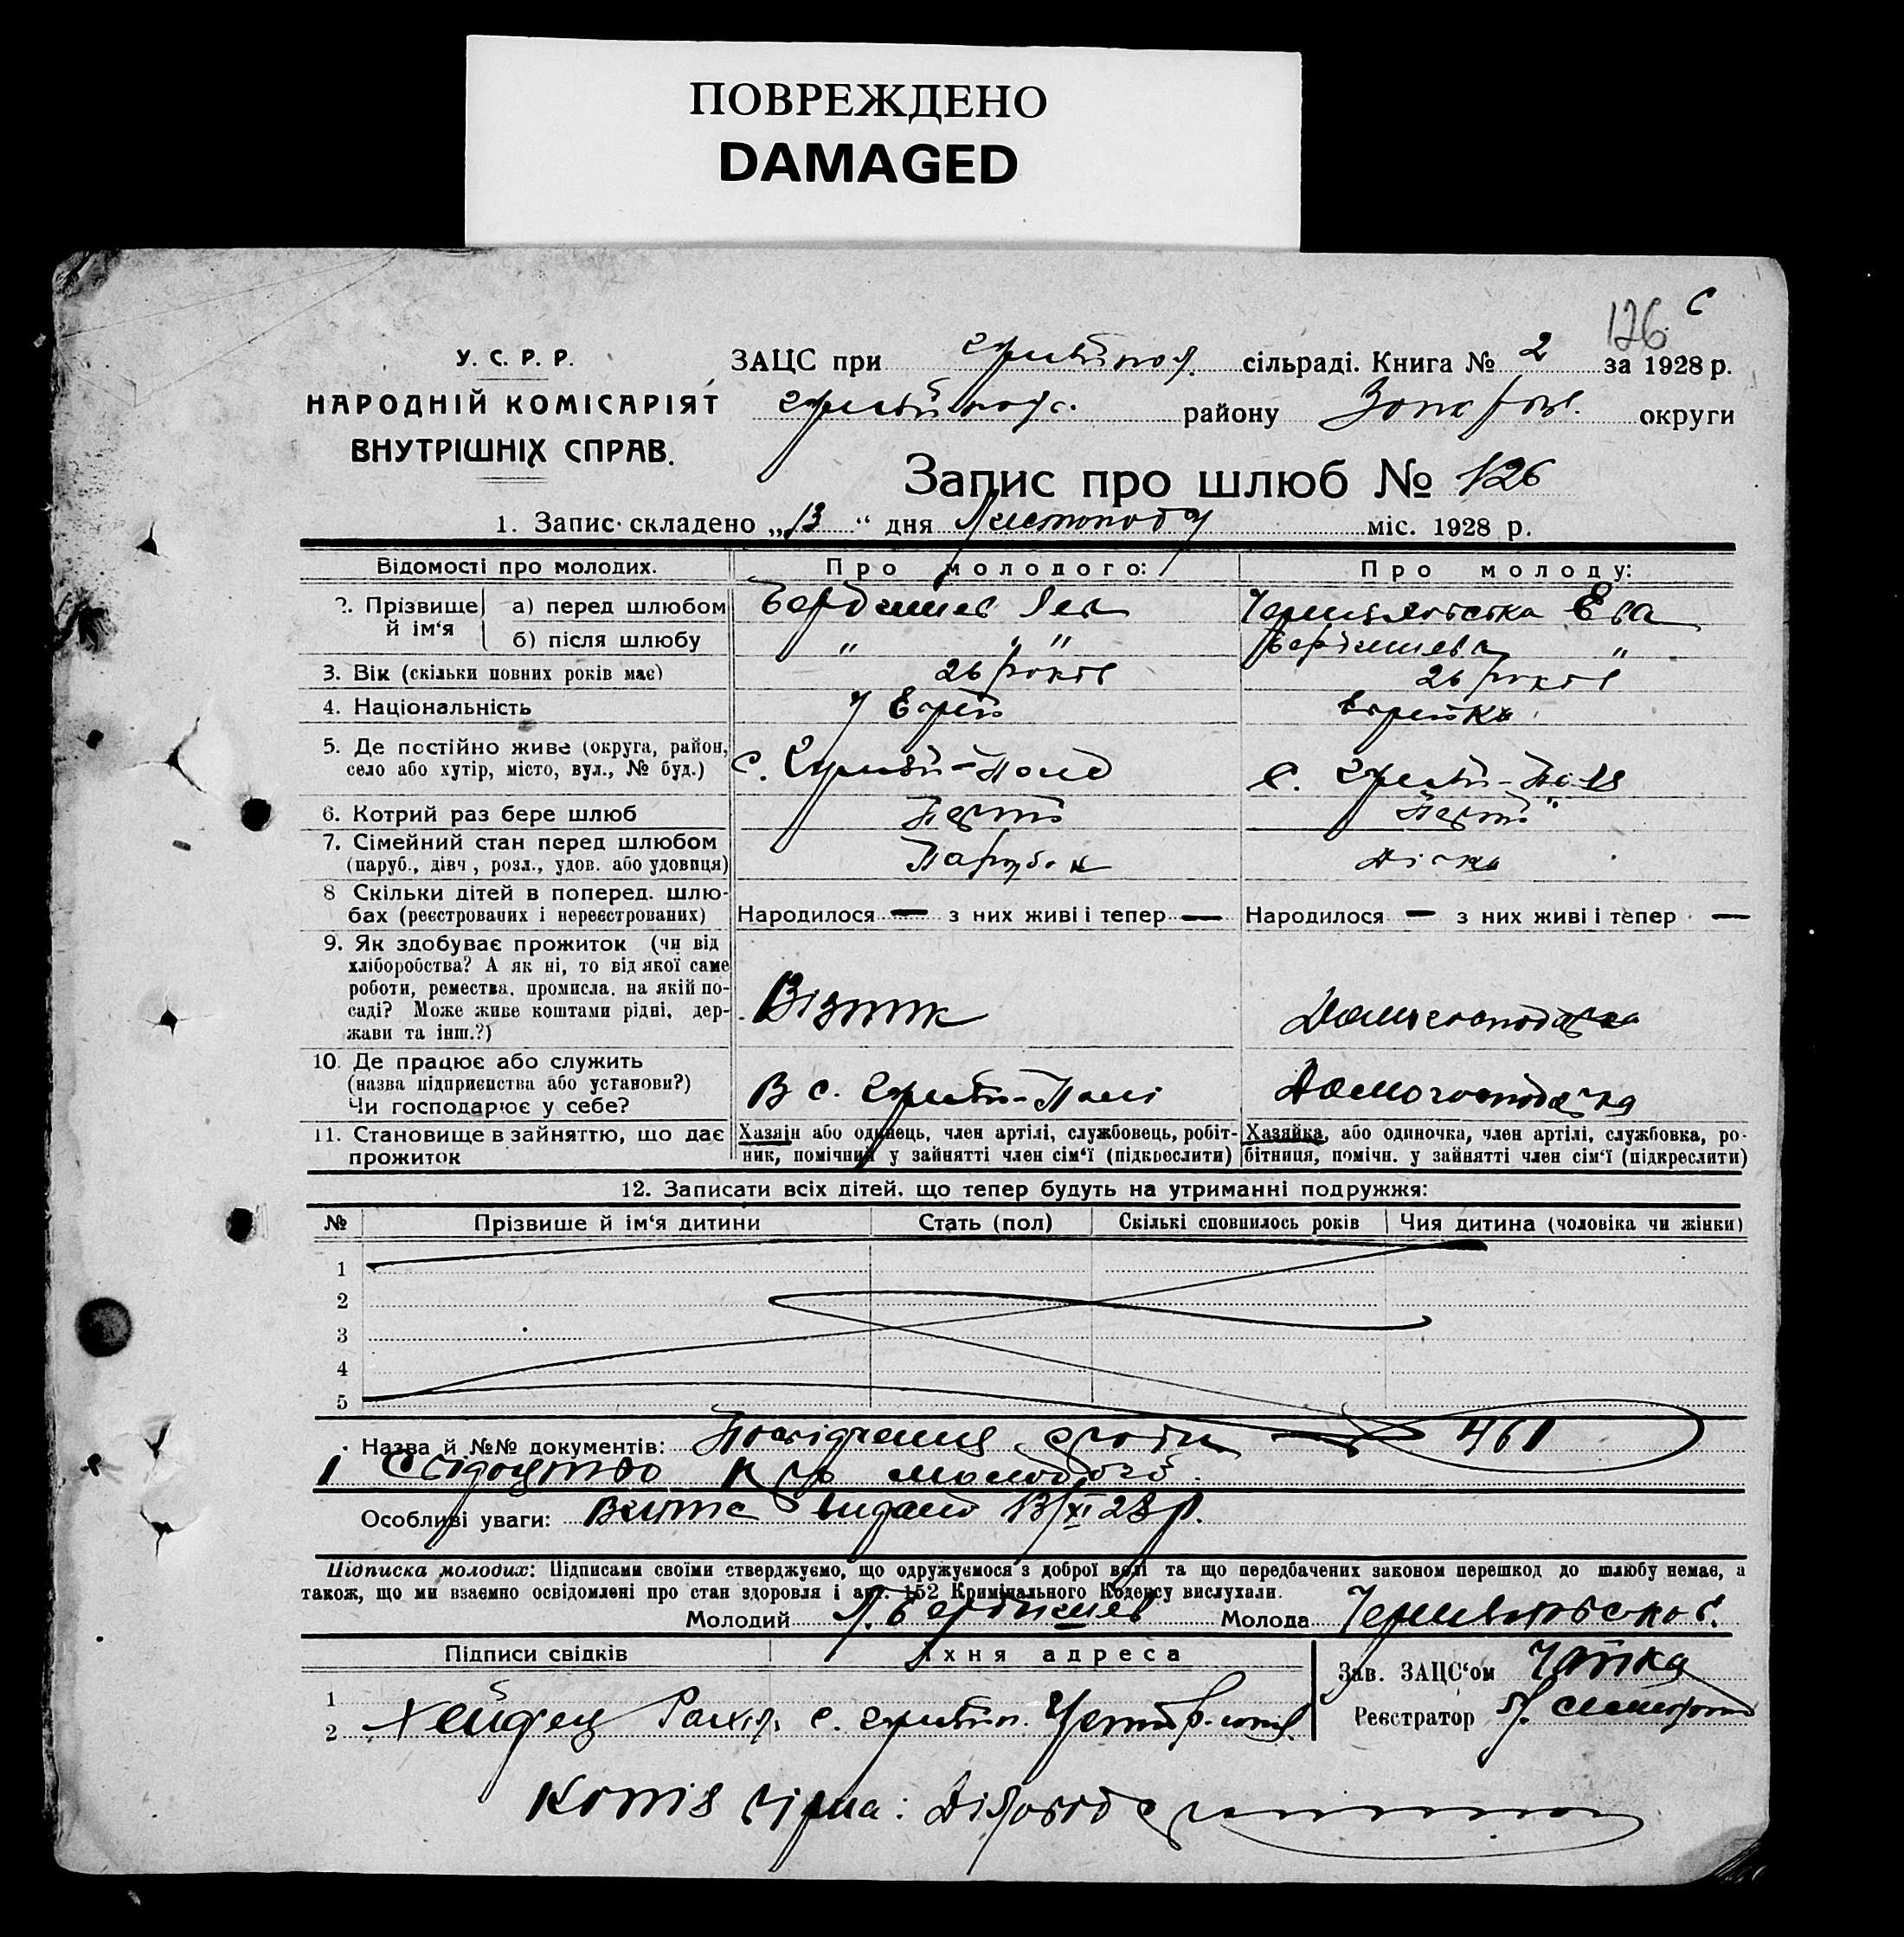 ПОВРЕЖДЕНО
DAMAGED
126 с
У. С. Р. Р.
НАРОДНІЙ КОМІСАРІЯТ
ВНУТРІШНІХ СПРАВ.
ЗАЦС при Гуляйпол. сільраді. Книга № 2 за 1928 р.
Гуляйпольс. району Запоріз. округи
Запис про шлюб № 126
1. Запис складено „13“ дня Листопаду міс. 1928 р.
Відомості про молодих. Про молодого: Про молоду:
2. Прізвище й ім‘я
а) перед шлюбом Бердишев Лев Ева
б) після шлюбу " " " Бердишева "
3. Вік (скільки повних років має) 26 років 26 років
4. Національність Еврей Еврейка
5. Де постійно живе (округа, район, с. Гуляй-Поле с. Гуляй-Поля
село або хутір, місто, вул., № буд.)
6. Котрий раз бере шлюб Перший Перший
7. Сімейний стан перед шлюбом Парубок Дівка
(паруб., дівч, розл., удов. або удовиця)
8 Скільки дітей в поперед. шлю-
бах (реєстрованих і нереєстрованих) Народилося — з них живі і тепер — Народилося — з них живі і тепер —
9. Як здобуває прожиток (чи від
хліборобства? А як ні, то від якої саме
роботи, ремества, промисла, на якій по-
саді? Може живе коштами рідні, дер- Візник Домогосподарка
жави та інш.?)
10. Де працює або служить
(назва підприєнства або установи?) В с. Гуляй-Полі Домогосподарка
Чи господарює у себе?
11. Становище в зайняттю, що дає Хазяїн або одинець, член артілі, службовець, робіт- Хазяйка, або одиночка, член артілі, службовка, ро-
прожиток ник, помічний у зайнятті член сім‘ї (підкреслити) бітниця, помічн. у зайнятті член сім‘ї (підкреслити)
12. Записати всіх дітей, що тепер будуть на утриманні подружжя:
№ Прізвише й ім‘я дитини Стать (пол) Скількі сповнилось років Чия дитина (чоловіка чи жінки)
1
2
3
4
5
Назва й №№ документів: Посвідчення 461
1 Свідоцтво молодого.
Особливі уваги: видано 13/XI 28 р.
Підписка молодих: Підписами своїми стверджуємо, що одружуємося з доброї волі та що передбачених законом перешкод до шлюбу немає, а
також, що ми взаємно освідомлені про стан здоровля і арт. 152 Кримінального Кодексу вислухали.
Молодий Л. Бердишев Молода
Підписи свідків Їхня адреса Зав. ЗАЦС‘ом Чайка
1
2 Хейфец с. Гуляйп. Реєстратор
Копія вірна: Діловод